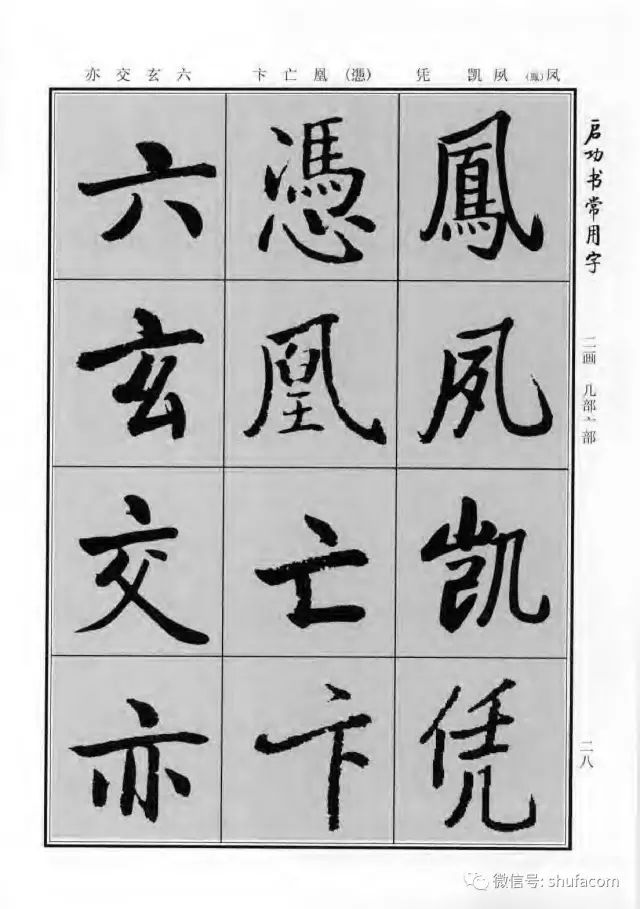 凤(鳳) 夙 凯 凭 (憑) 凰 亡 卞 六 玄 交 亦
启功书常用字
二画 几部亠部
二八
鳳
夙
凯
凭
憑
凰
亡
卞
六
玄
交
亦
微信号: shufacom